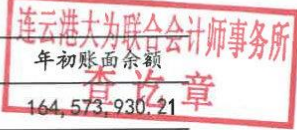 连云港大为联合会计师事务所
年初账面余额
查讫章
164,573,930.21